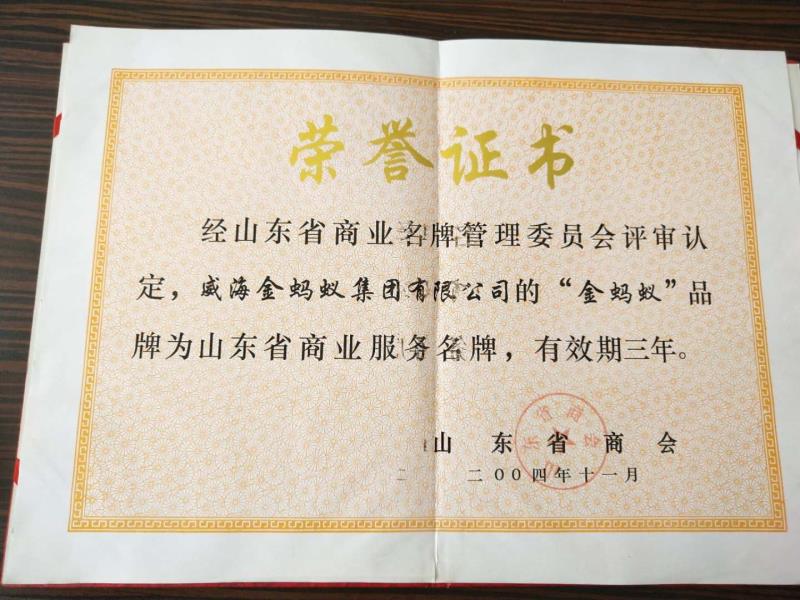 荣誉证书
经山东省商业名牌管理委员会评审认
定，威海金蚂蚁集团有限公司的“金蚂蚁”品
牌为山东省商业服务名牌，有效期三年。
山东省商会
二〇〇四年十一月
山东省商会